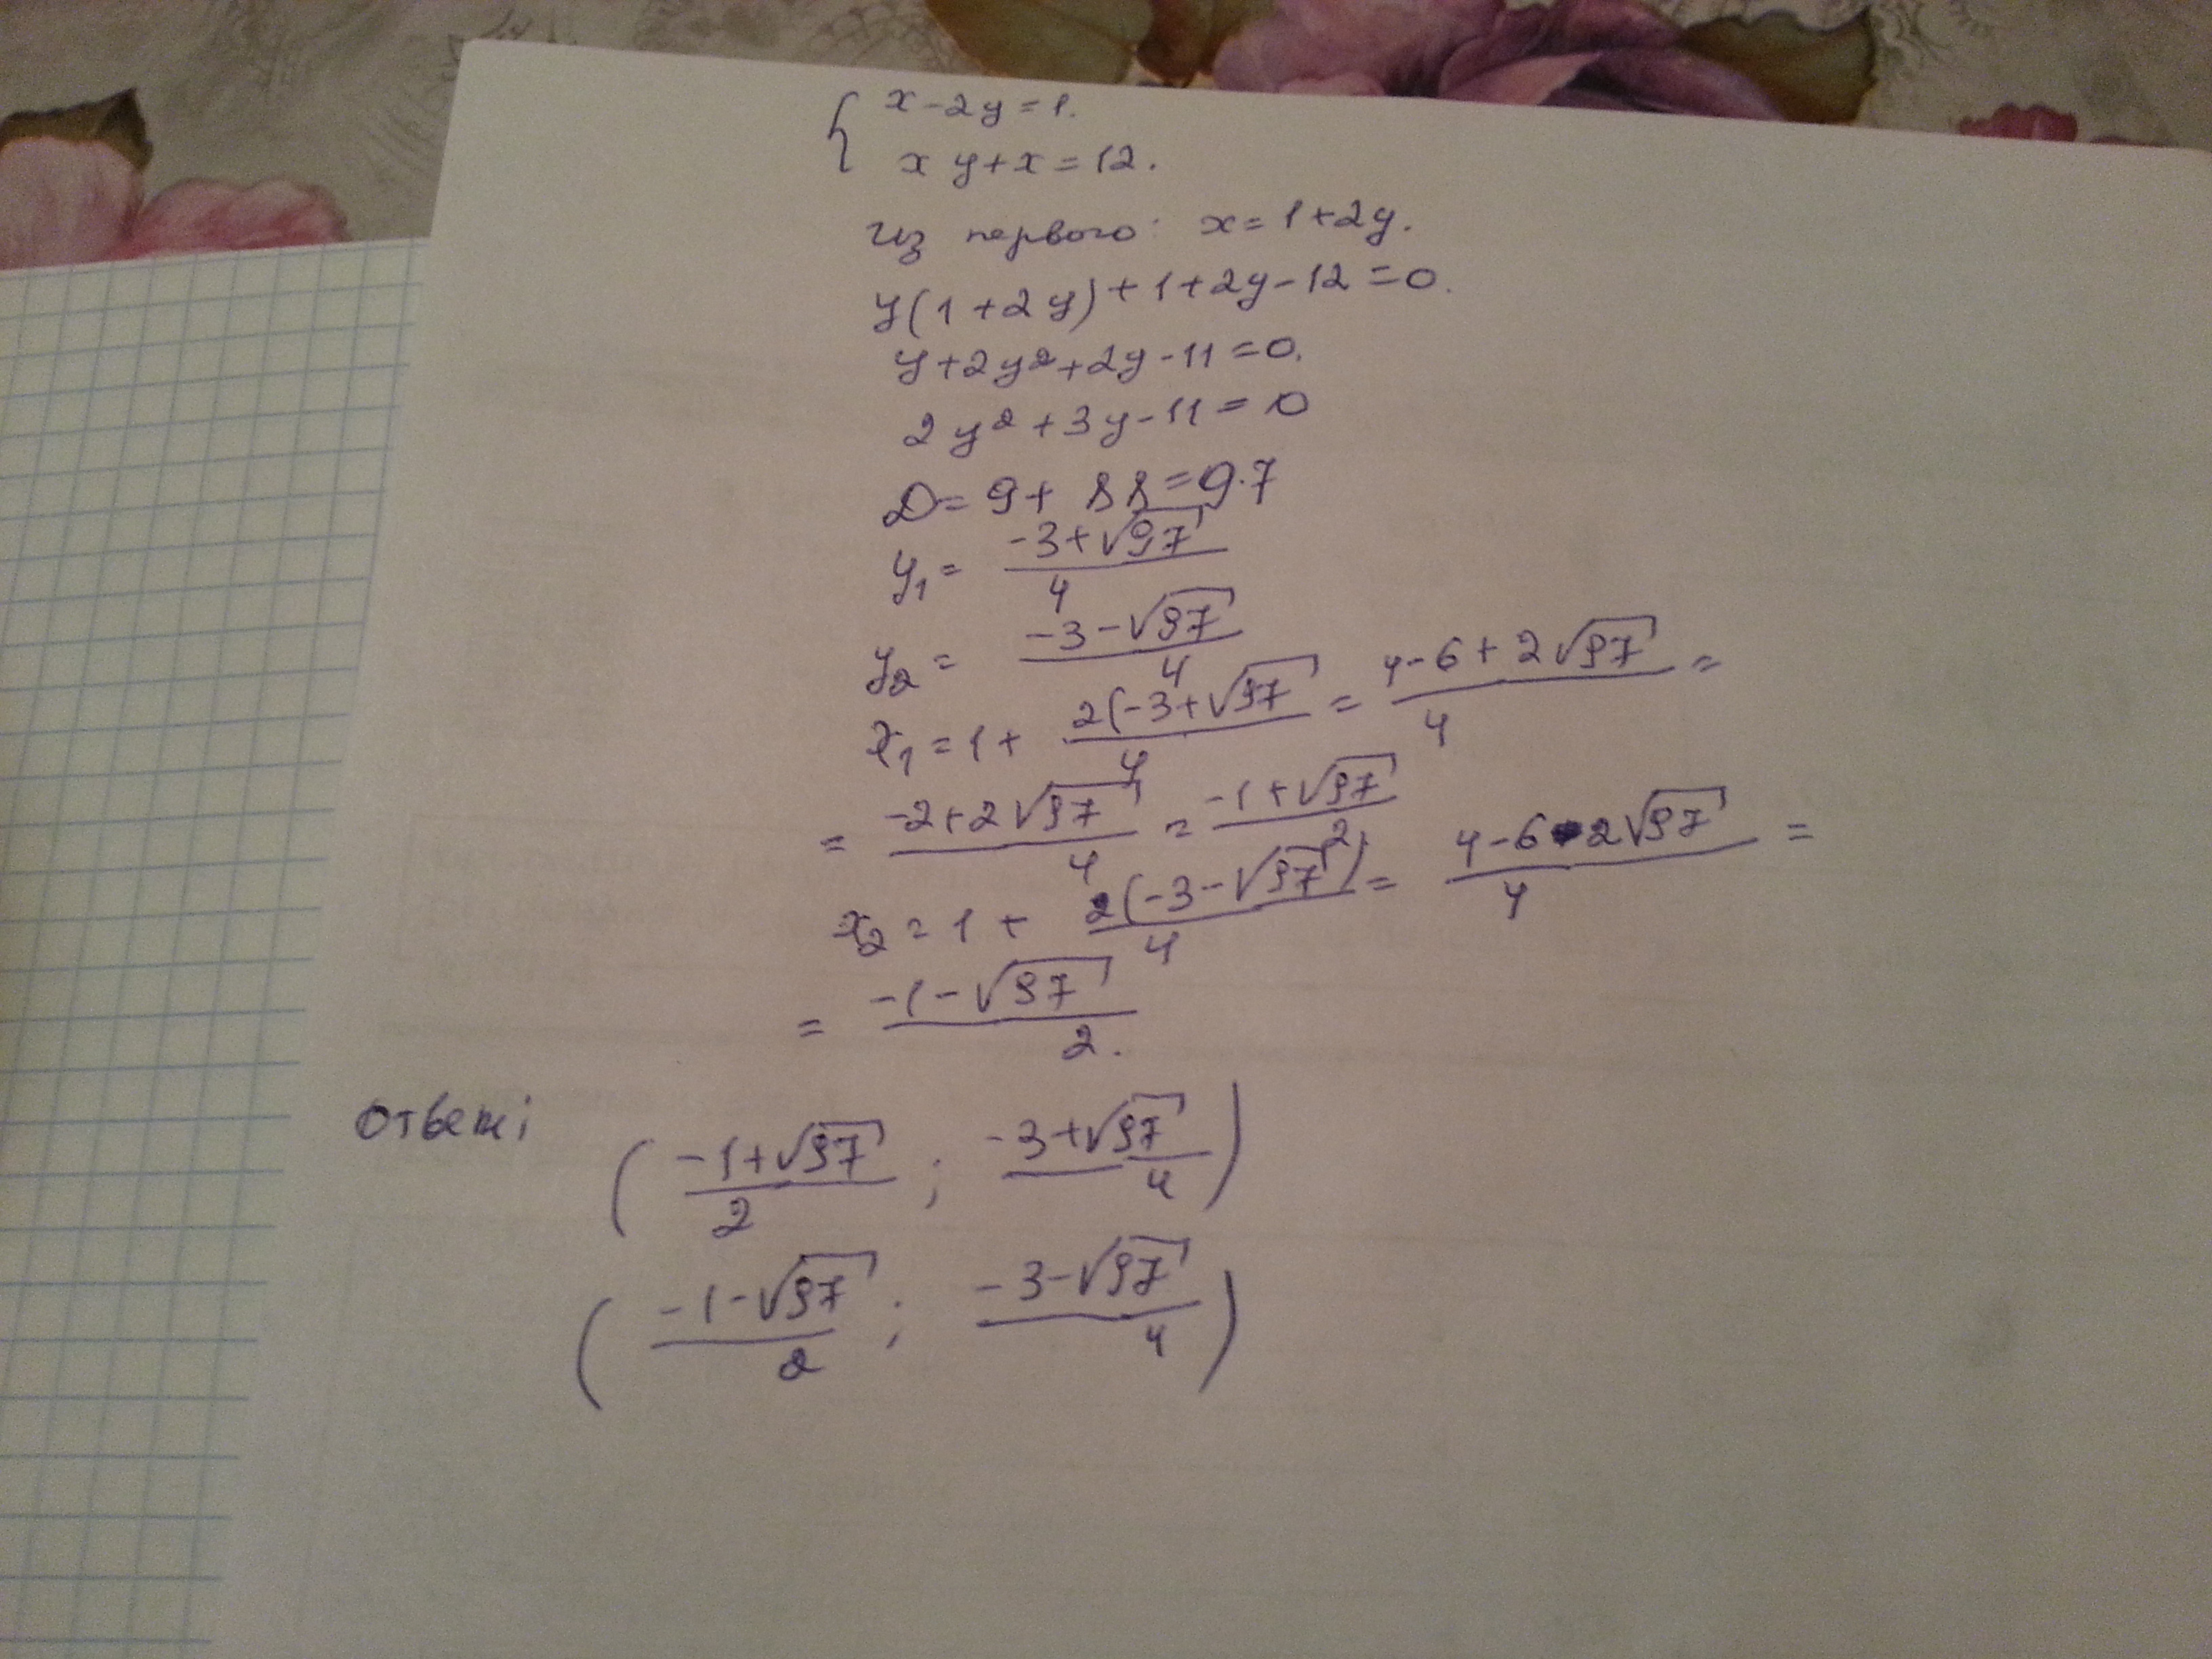 { x - 2y = 1.
xy + x = 12.
Из первого: x = 1 + 2y.
y(1 + 2y) + 1 + 2y - 12 = 0.
y + 2y² + 2y - 11 = 0.
2y² + 3y - 11 = 0
D = 9 + 88 = 97
y₁ = (-3 + √97)/4
y₂ = (-3 - √97)/4
x₁ = 1 + 2(-3 + √97/4 = (4 - 6 + 2√97)/4 =
= (-2 + 2√97)/4 = (-1 + √97)/2
x₂ = 1 + 2(-3 - √97)/4 = (4 - 6 - 2√97)/4 =
= (-1 - √97)/2.
Ответ:
((-1 + √97)/2 ; (-3 + √97)/4)
((-1 - √97)/2 ; (-3 - √97)/4)